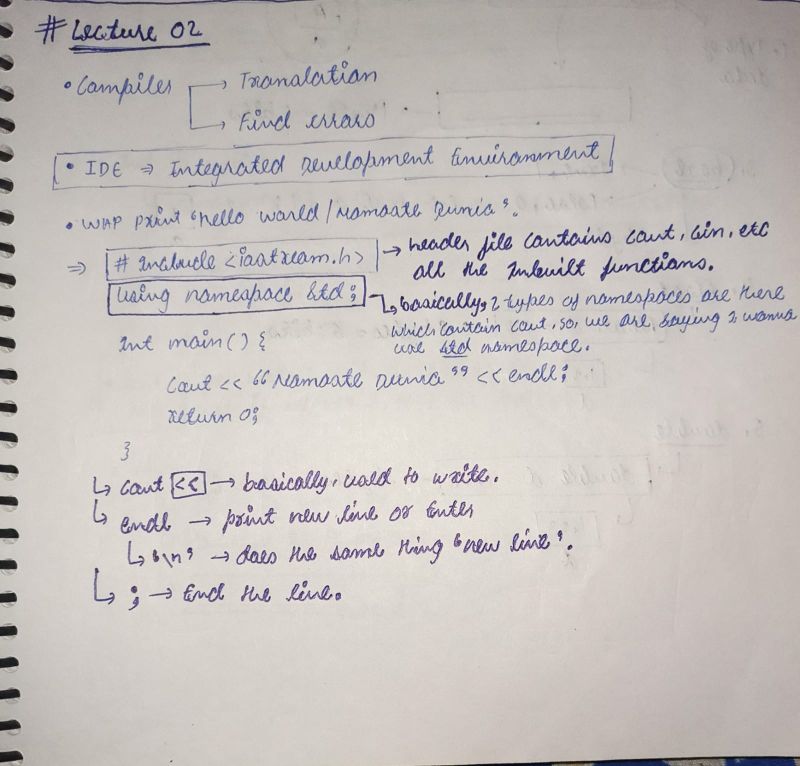 # Lecture 02
• Compiler → Translation
→ Find errors
• IDE ⇒ Integrated Development Environment
• WAP print 'Hello world / Namaste Dunia'.
⇒ # Include <iostream.h> → header file contains cout, cin, etc
all the Inbuilt functions.
using namespace std; ↳ basically, 2 types of namespaces are there
which contain cout, so, we are saying I wanna
use std namespace.
Int main() {
Cout << "Namaste Dunia" << endl;
return 0;
}
↳ cout << → basically used to write.
↳ endl → print new line or Enter
↳ '\n' → does the same thing 'new line'.
↳ ; → End the line.